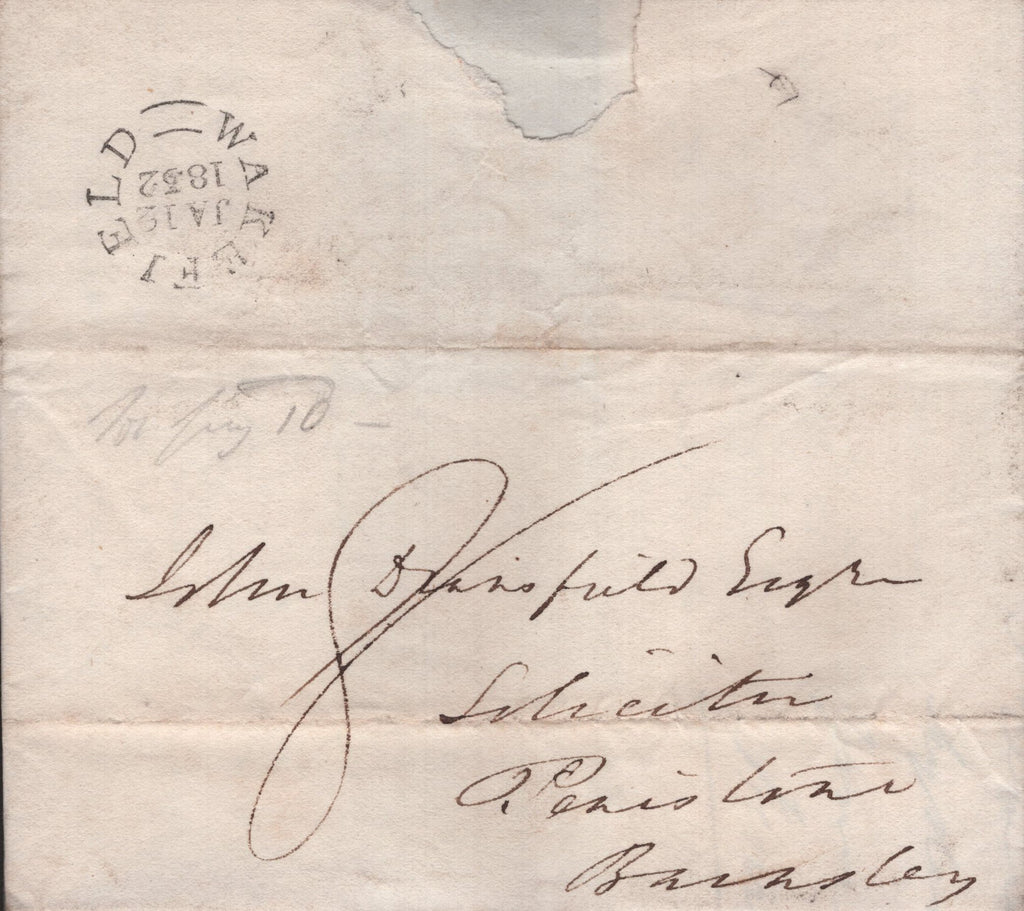 WAKEFIELD
JA 12
1832
John Dransfield Esqre
Solicitor
Penistone
Barnsley
8